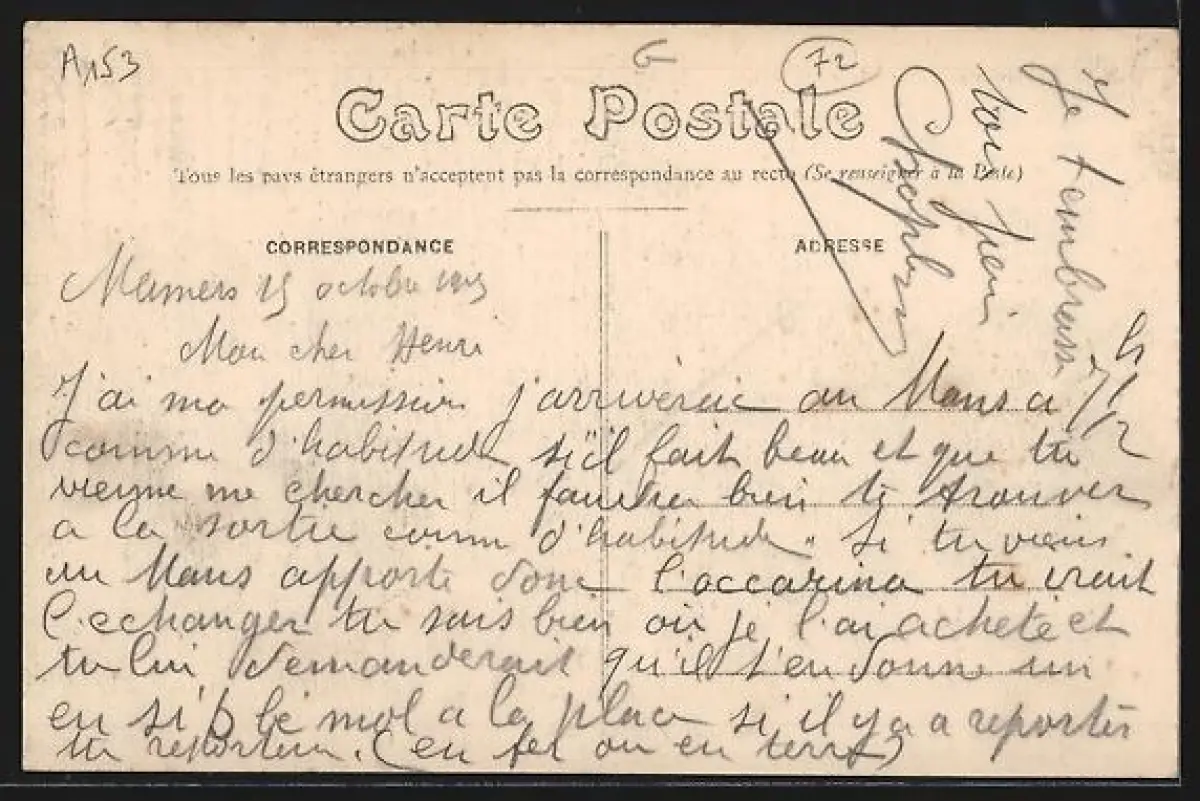 A153
G
72
Carte Postale
Tous les pays étrangers n'acceptent pas la correspondance au recto (Se renseigner à la Poste)
CORRESPONDANCE
ADRESSE
Mamers 15 octobre
Mon cher Henri
J'ai ma permission j'arriverai au Mans a
comme d'habitude s'il fait beau et que tu
vienne me chercher il faudra bien te trouver
a la sortie comm d'habitude. Si tu viens
au Mans apporte donc l'occarina tu irait
l'echanger tu sais bien où je l'ai acheté et
tu lui demanderait qu'il t'en donne un
en si b bé mol a la place si il y a a reporter
tu reporteras. (en fer ou en terre)
Je t'embrasse
ton